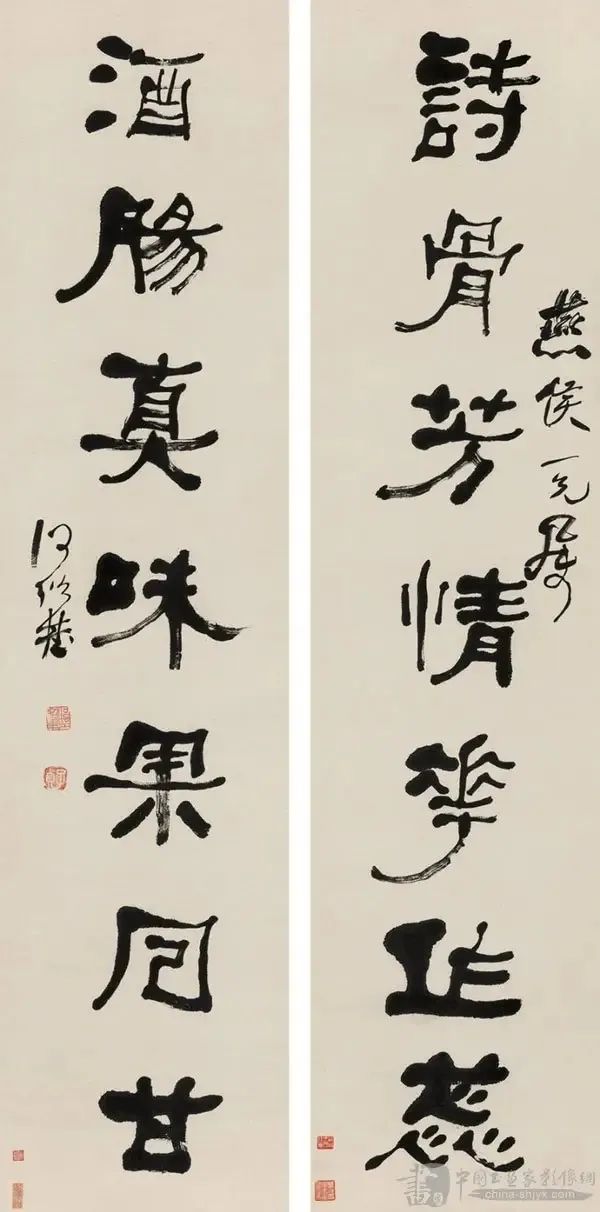 詩骨芳情華作蕊
燕侯一兄屬
酒腸真味果同甘
何紹基
書
中國书画家影像網
china-shjyx.com